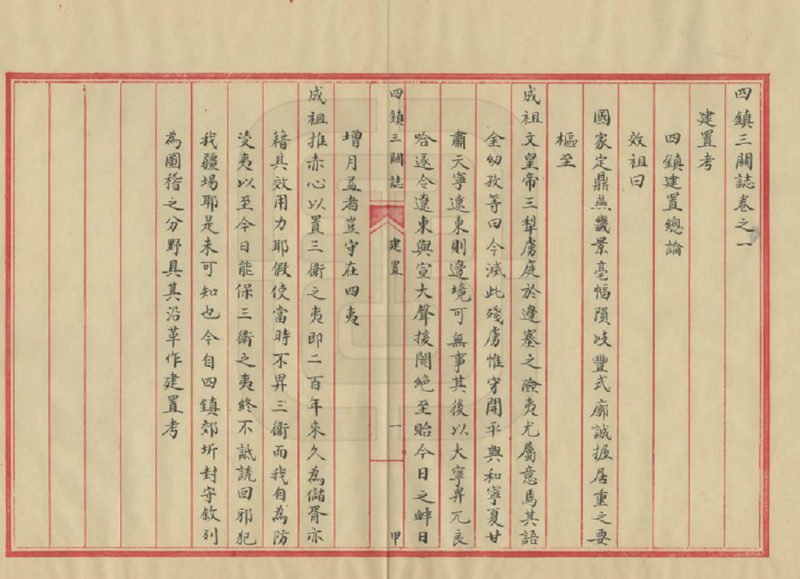 四鎮三關誌卷之一
建置考
四鎮建置總論
效祖曰
國家定鼎燕畿景亳幅隕岐豐式廓誠握居重之要
樞至
成祖文皇帝三犁虜庭於邊塞之險夷尤屬意焉其語
金幼孜等曰今滅此殘虜惟守開平興和寧夏甘
肅天寧遼東則邊境可無事其後以大寧畀兀良
哈遂令遼東與宣大聲援闊絕至貽今日之衅日
四鎮三關誌 建置 一 甲
增月益者豈守在四夷
成祖推赤心以置三衛之夷即二百年來久為儲胥亦
藉其效用力耶假使當時不畀三衛而我自為防
淩夷以至今日能保三衛之夷終不詆謊回邪犯
我疆場耶是未可知也今自四鎮郊圻封守敘列
為圖稽之分野具其沿革作建置考